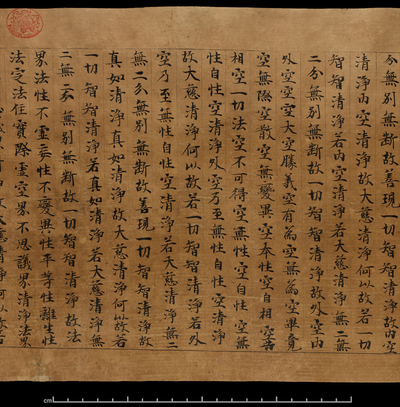 分無別無斷故善現一切智智清淨故內空
清淨內空清淨故大慈清淨何以故若一切
智智清淨若內空清淨若大慈清淨無二無
二分無別無斷故一切智智清淨故外空內
外空空空大空勝義空有為空無為空畢竟
空無際空散空無變異空本性空自相空共
相空一切法空不可得空無性空自性空無
性自性空清淨外空乃至無性自性空清淨
故大慈清淨何以故若一切智智清淨若外
空乃至無性自性空清淨若大慈清淨無二
無二分無別無斷故善現一切智智清淨故
真如清淨真如清淨故大慈清淨何以故若
一切智智清淨若真如清淨若大慈清淨無
二無二分無別無斷故一切智智清淨故法
界法性不虛妄性不變異性平等性離生性
法定法住實際虛空界不思議界清淨法界
cm